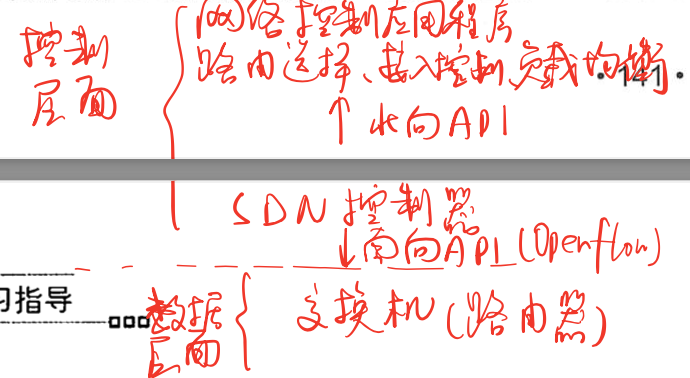 控制
层面
网络控制应用程序
路由选择、接入控制、负载均衡
·141·
↑北向API
SDN控制器
↓南向API(Openflow)
习指导
数据
层面
交换机(路由器)